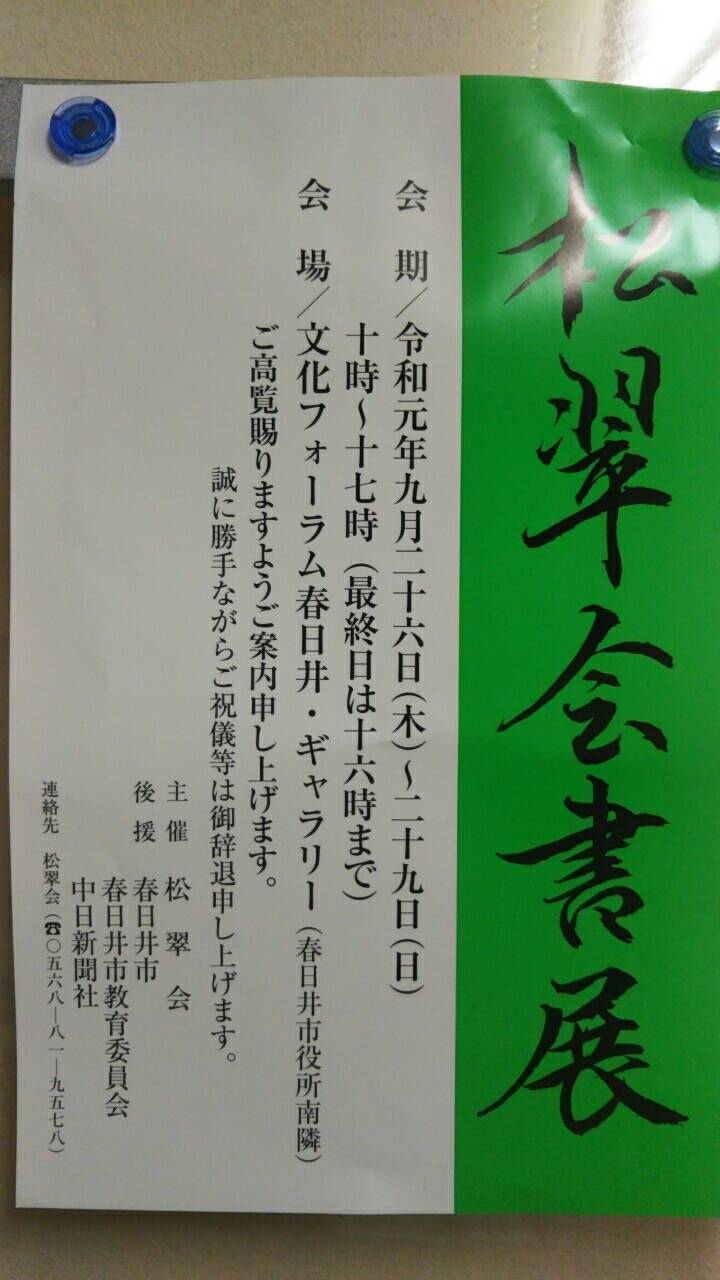 松翠会書展
会期／令和元年九月二十六日(木)～二十九日(日)
十時～十七時（最終日は十六時まで）
会場／文化フォーラム春日井・ギャラリー（春日井市役所南隣）
ご高覧賜りますようご案内申し上げます。
誠に勝手ながらご祝儀等は御辞退申し上げます。
主催 松翠会
後援 春日井市
春日井市教育委員会
中日新聞社
連絡先 松翠会（☎〇五六八―八一―九五七八）